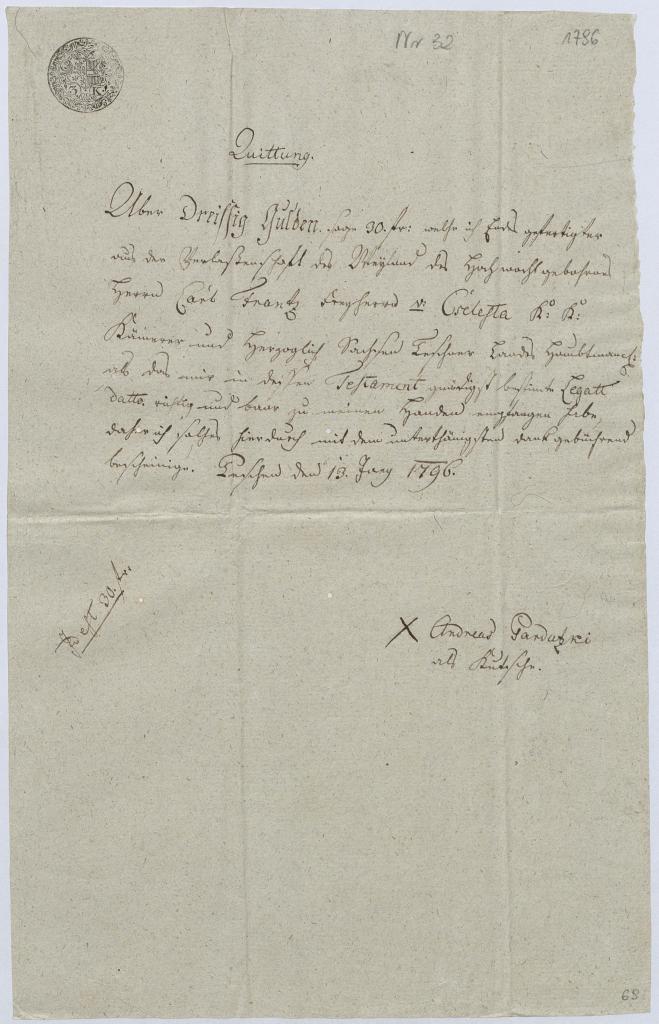 Nr 32
1796
3 K
Quittung.
Über Dreissig Gulden. sage 30. fr: welche ich Endes gefertigter
aus der Verlassenschaft des Weyland des Hochwohlgebohrnen
Herrn Carl Frantz Freyherrn v: Cselesta K: K:
Kämerer und Herzoglich Sachsen Teschner Landes Haubtmann
als das mir in dessen Testament gnädigst bestimte Legatt
datto. richtig und baar zu meinen Handen empfangen habe,
daher ich solches hierdurch mit dem unterthänigsten dank gebührend
bescheinige. Teschen den 13. 1796.
Est 30. fr.
X Andreas Pardutzki
als Kutscher.
68